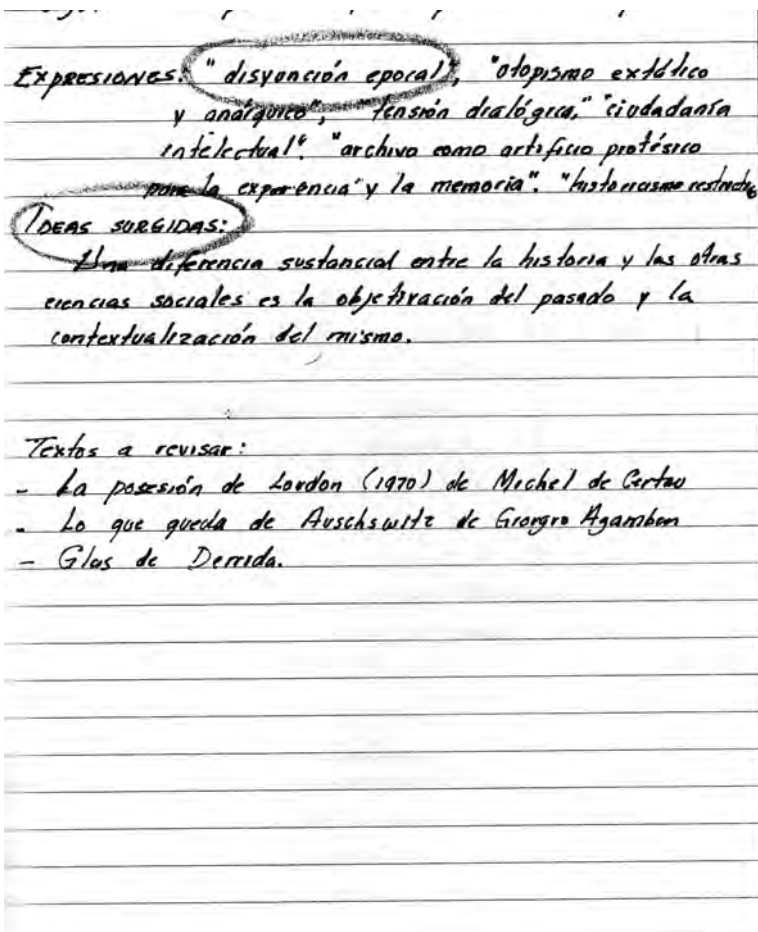 EXPRESIONES: "disyunción epocal", "otopismo extático
y anárquico", "tensión dialógica," "ciudadanía
intelectual". "archivo como artificio protésico
para la experiencia" y la memoria". "historicismo
IDEAS SURGIDAS:
Una diferencia sustancial entre la historia y las otras
ciencias sociales es la objetivación del pasado y la
contextualización del mismo.
Textos a revisar:
- La posesión de Loudon (1970) de Michel de Certau
- Lo que queda de Auschswitz de Giorgio Agamben
- Glas de Derrida.